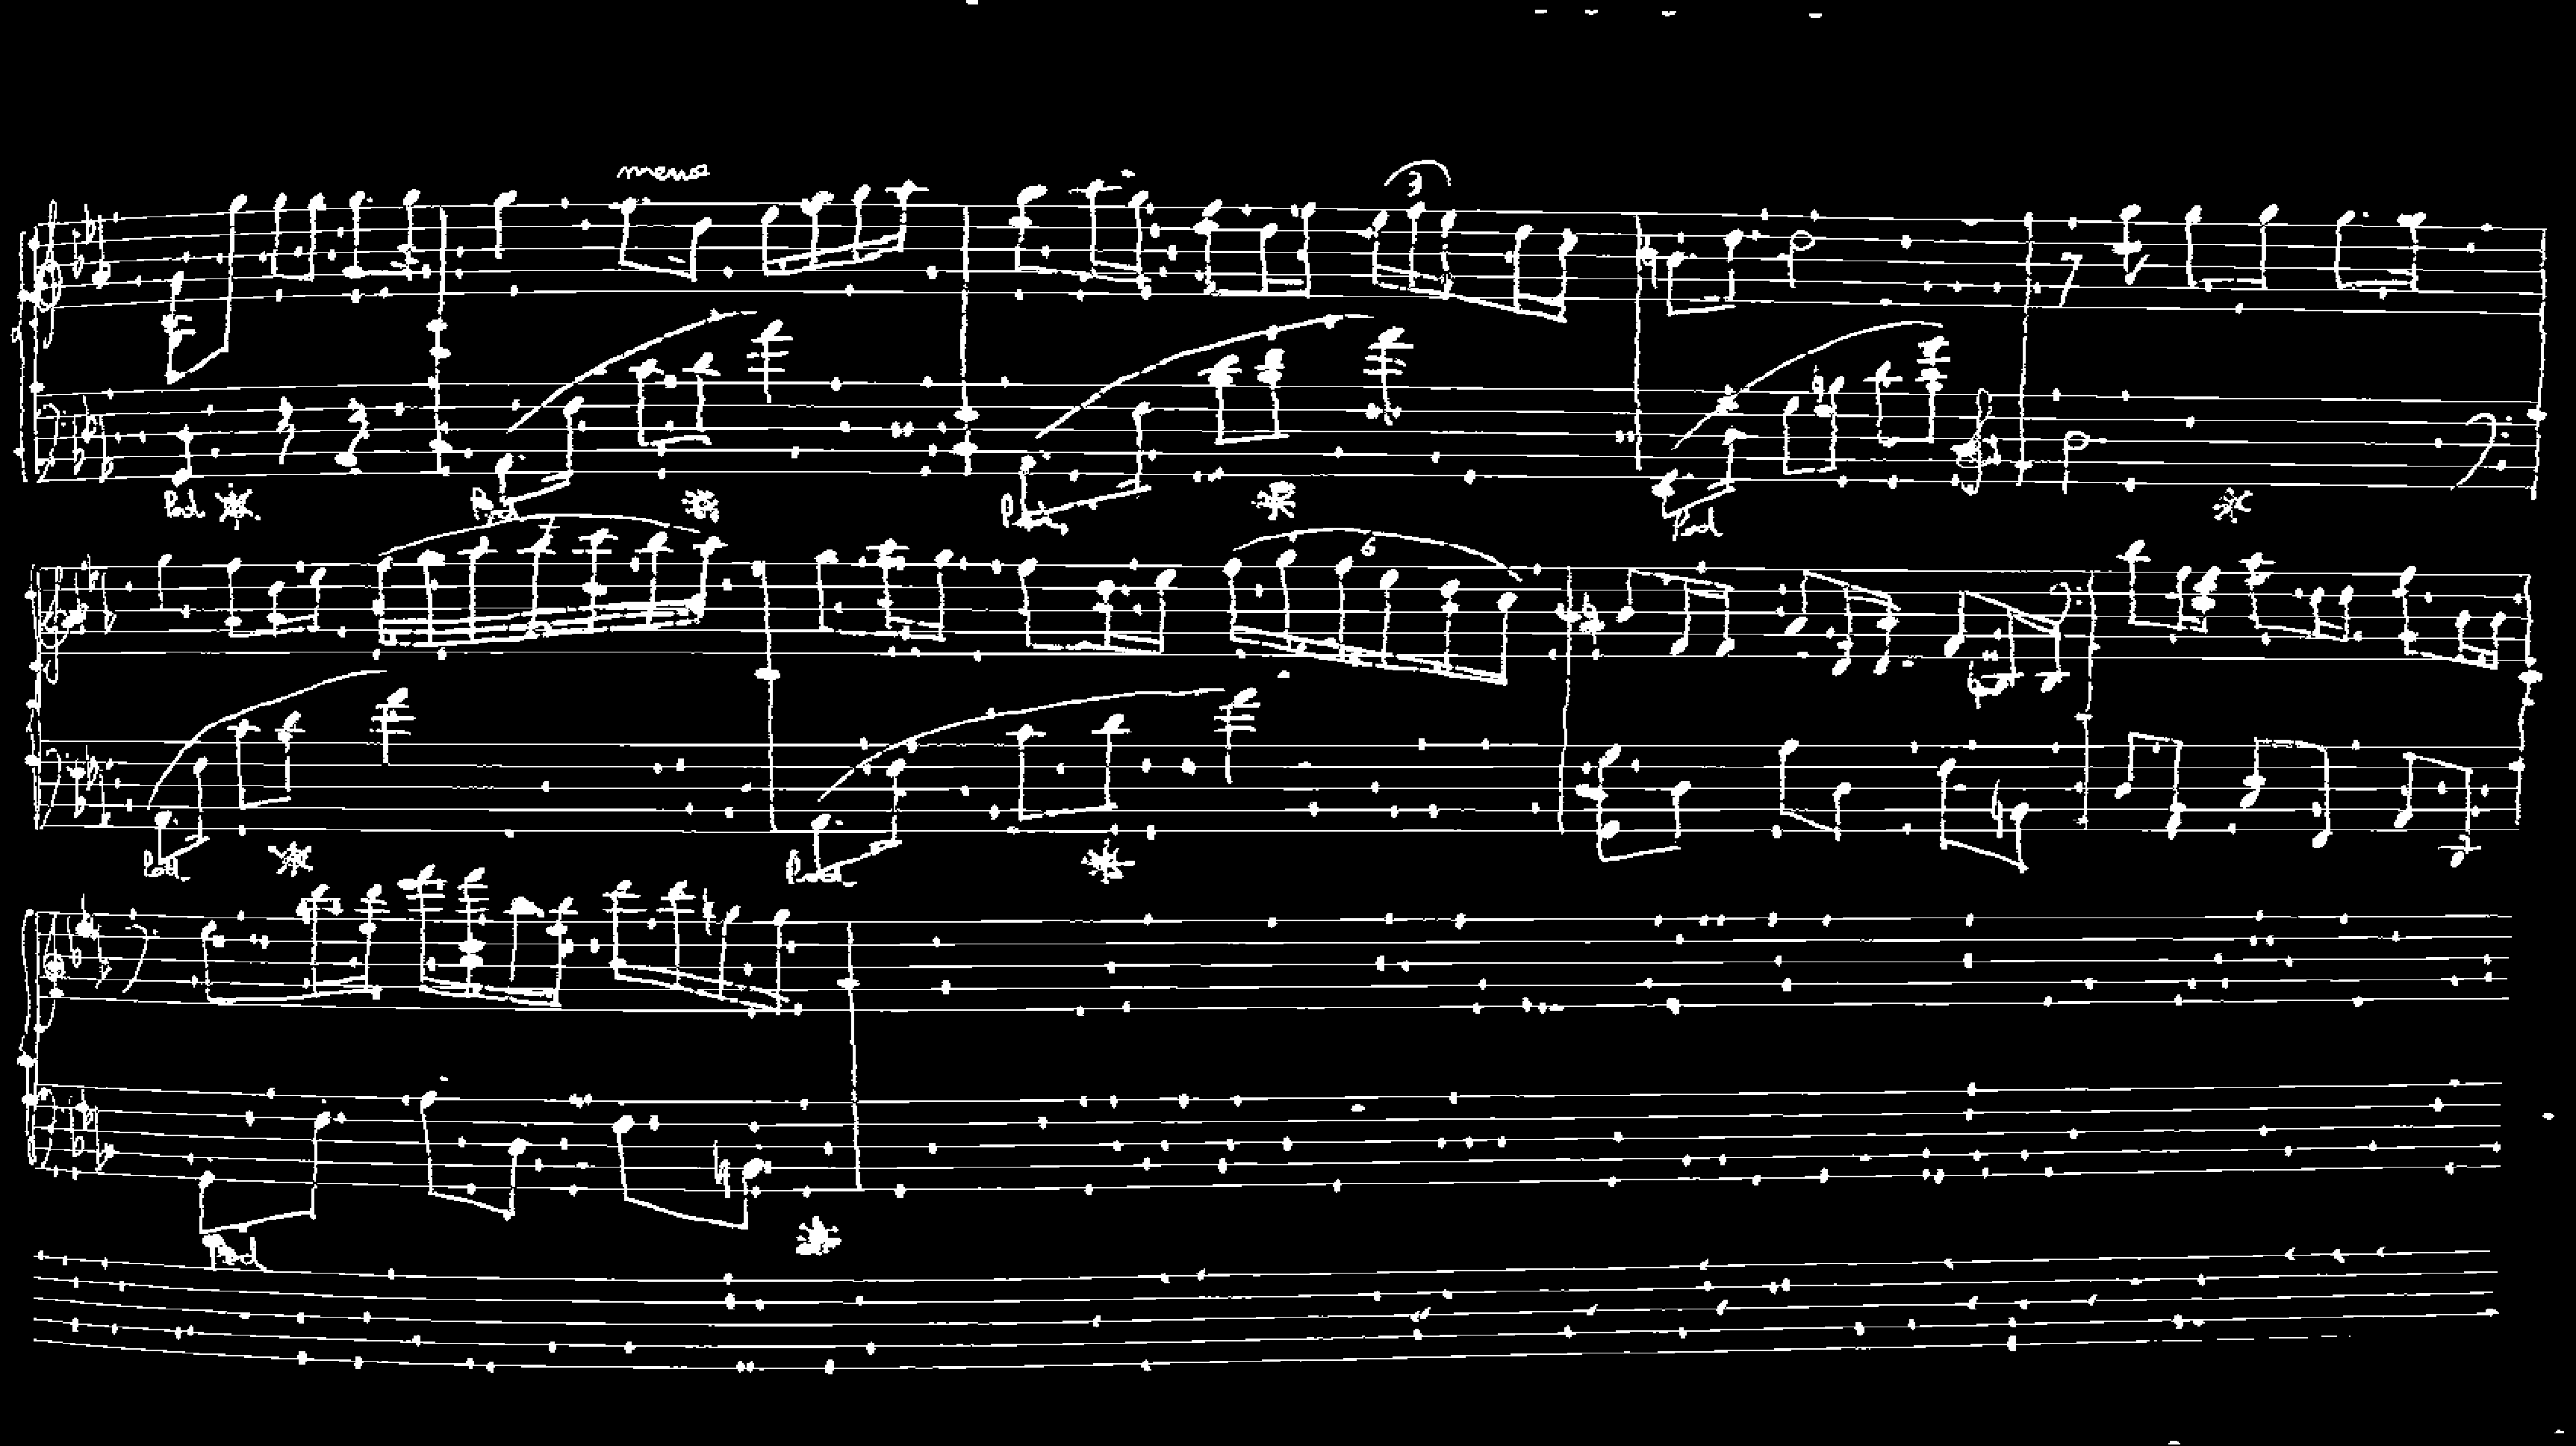 meno
3
Ped Ped Ped Ped
7
6
Ped Ped
Ped